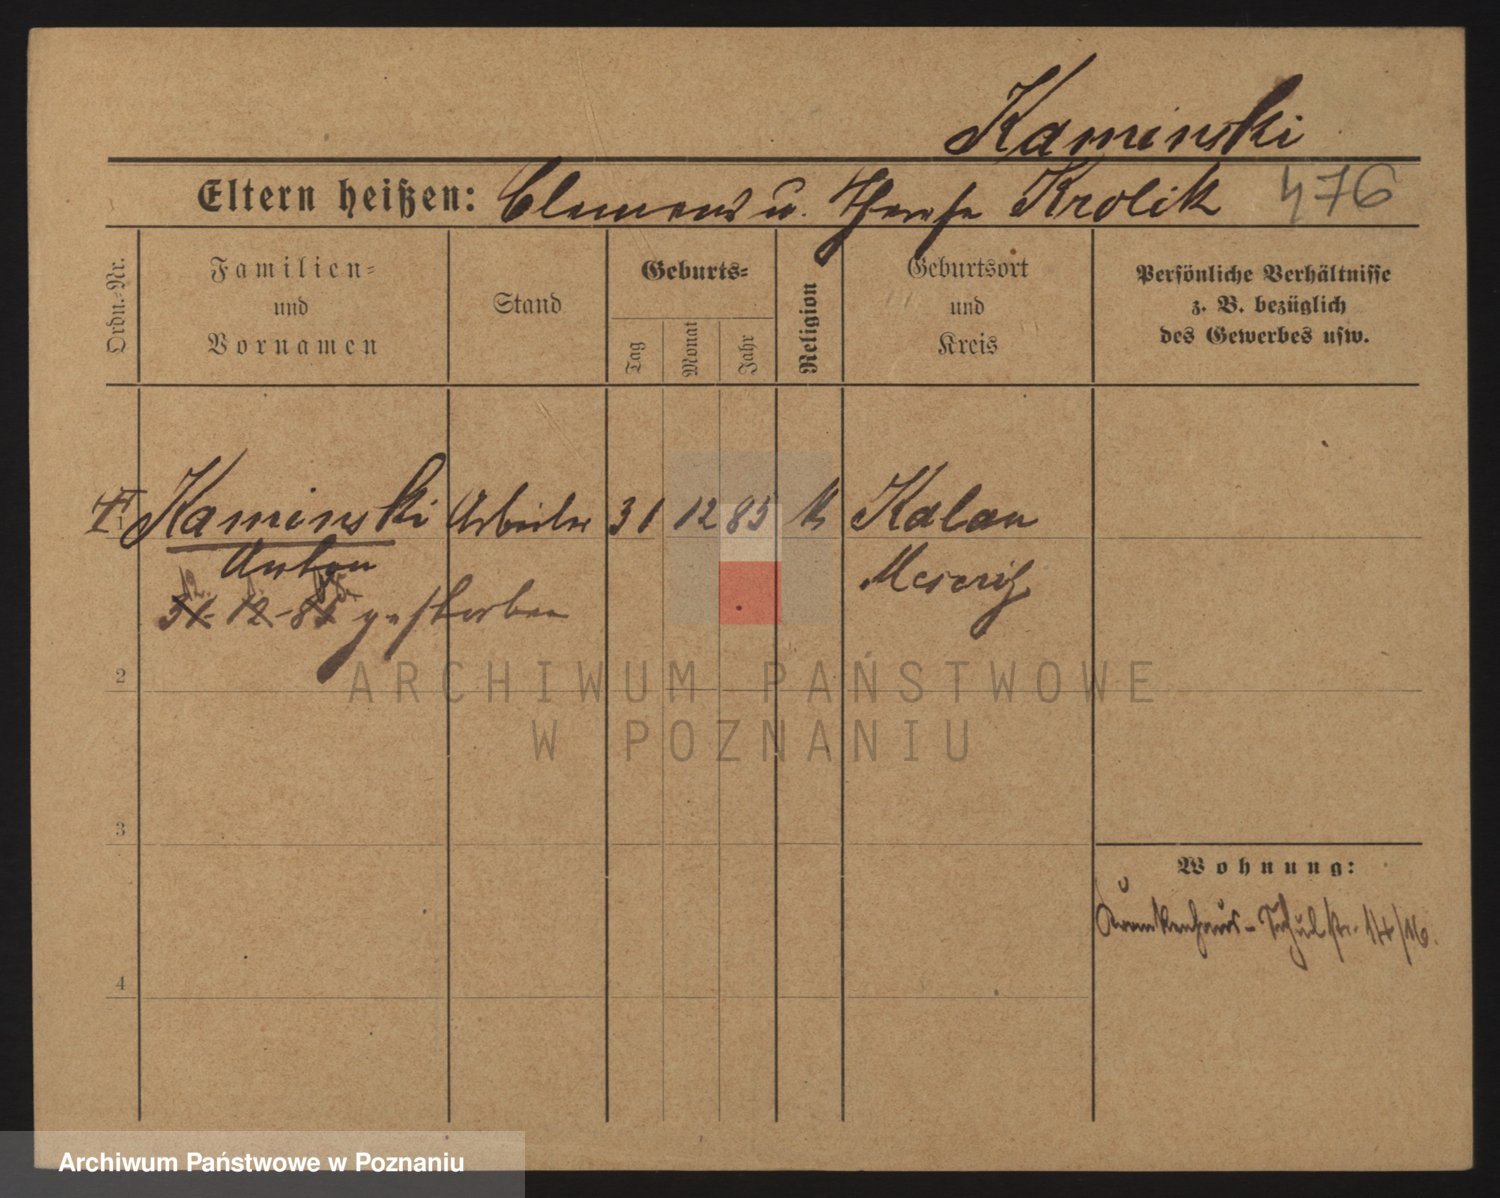 Kaminski
Eltern heißen: Clemens u. Therese Krolik 476
Ordn.-Nr.
Familien-
und
Vornamen
Stand
Geburts-
Tag
Monat
Jahr
Religion
Geburtsort
und
Kreis
Persönliche Verhältnisse
z. B. bezüglich
des Gewerbes usw.
1 Kaminski Arbeiter 31 12 85 k Kalau
Anton Meseritz
31-12-85 gestorben
2
ARCHIWUM PAŃSTWOWE
W POZNANIU
3
Wohnung:
Krankenhaus- Schulstr. 14/16.
4
Archiwum Państwowe w Poznaniu